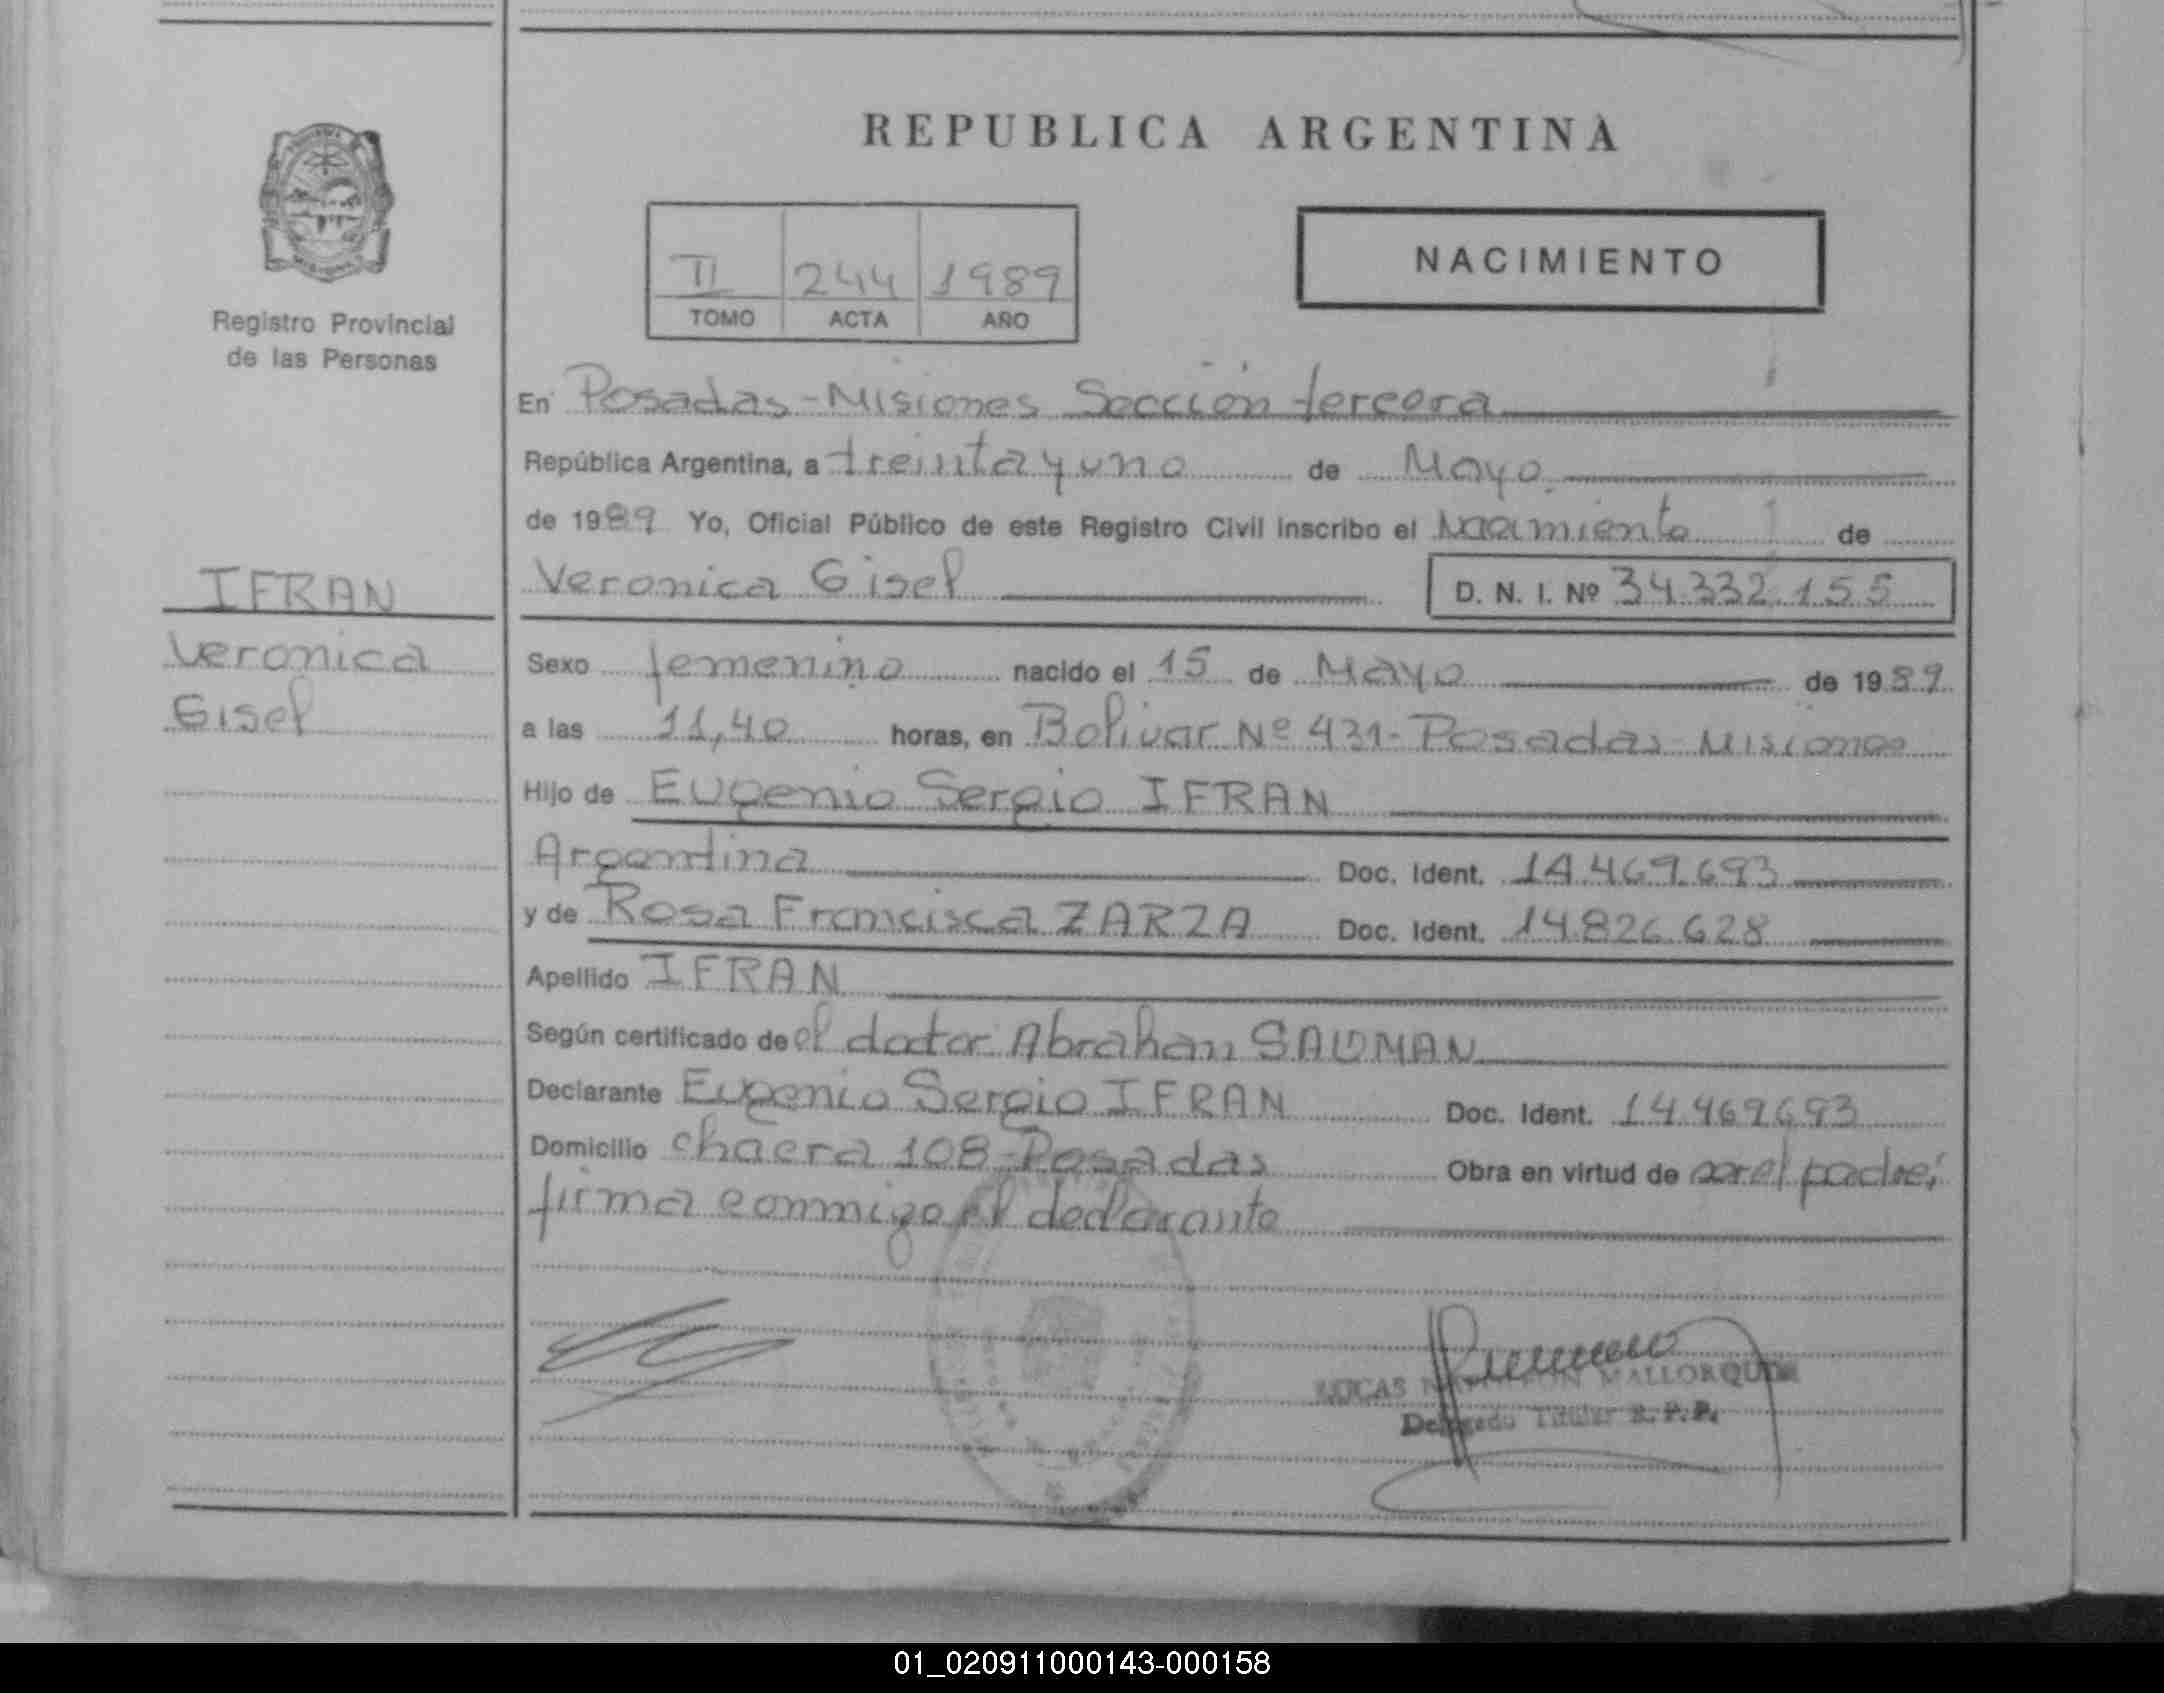 REPUBLICA ARGENTINA
NACIMIENTO
II 244 1989
TOMO ACTA AÑO
Registro Provincial
de las Personas
En Posadas - Misiones Sección tercera
República Argentina, a treinta y uno de Mayo
de 1989 Yo, Oficial Público de este Registro Civil inscribo el Nacimiento de
Veronica Gisel D. N. I. Nº 34.332.155
IFRAN
Veronica
Gisel
Sexo femenino nacido el 15 de Mayo de 1989
a las 11,40 horas, en Bolivar Nº 431 - Posadas - Misiones
Hijo de Eugenio Sergio IFRAN
Argentina Doc. Ident. 14.469.693
y de Rosa Francisca ZARZA Doc. Ident. 14.826.628
Apellido IFRAN
Según certificado de el doctor Abrahan
Declarante Eugenio Sergio IFRAN Doc. Ident. 14.469.693
Domicilio chacra 108 - Posadas Obra en virtud de ser el padre;
firma conmigo el declarante
LUCAS NAPOLEON
Delegado Titular R. P. P.
01_020911000143-000158